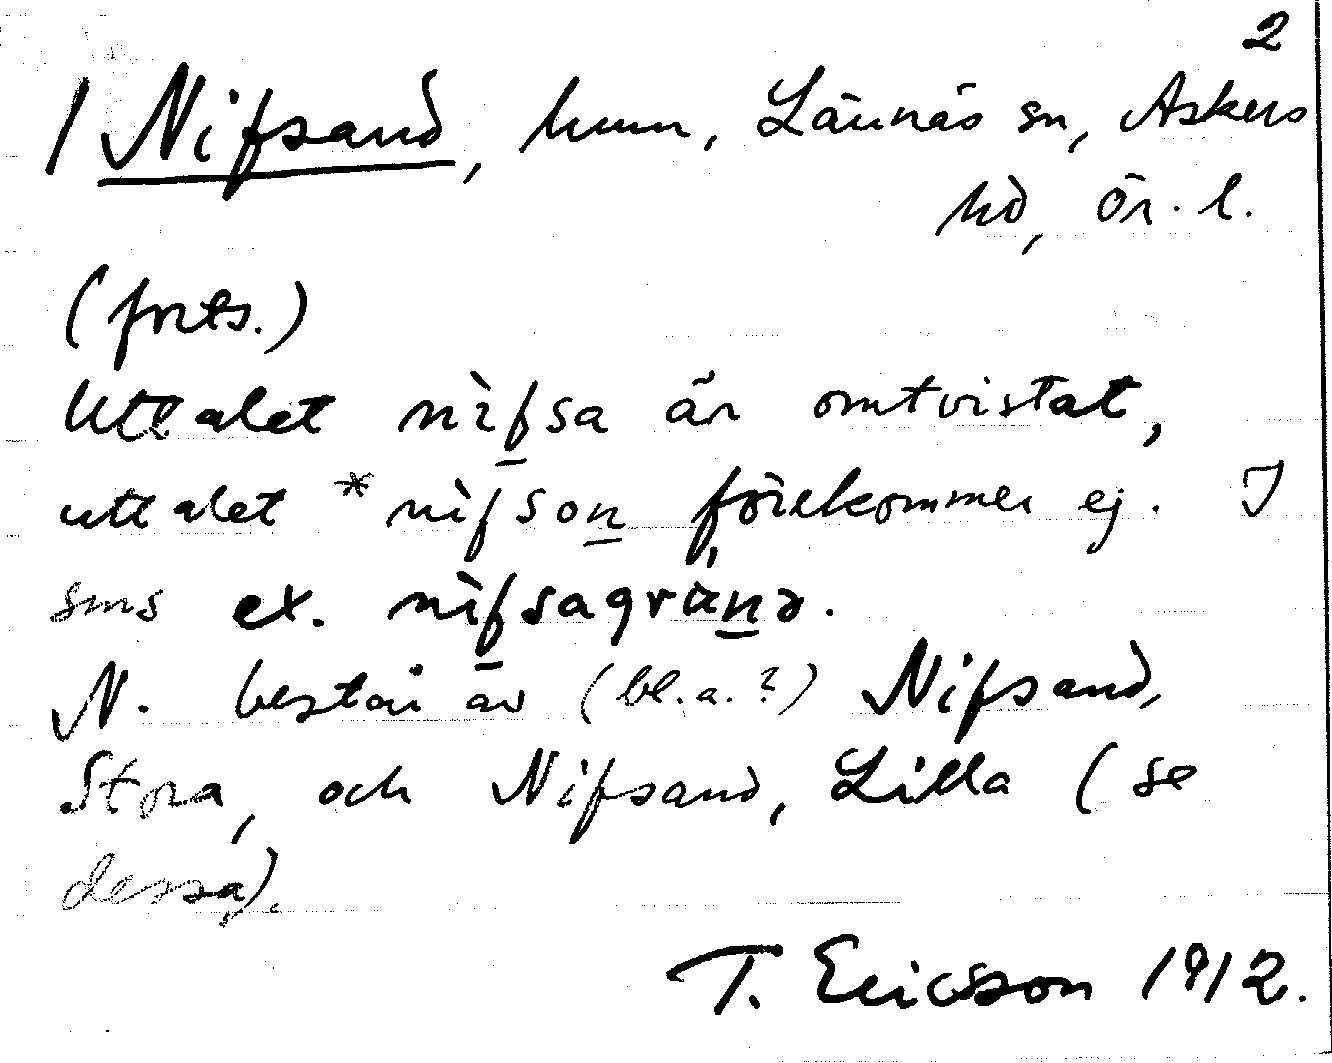 2
/ Nifsand, hmn, Lännäs sn, Askers
hd, Ör. l.
(forts.)
Uttalet nìfsa är omtvistat,
uttalet *nìfson förekommer ej. I
sms ex. nìfsagränd.
N. består av (bl.a.?) Nifsand,
Stora, och Nifsand, Lilla (se
dessa).
T. Ericsson 1912.